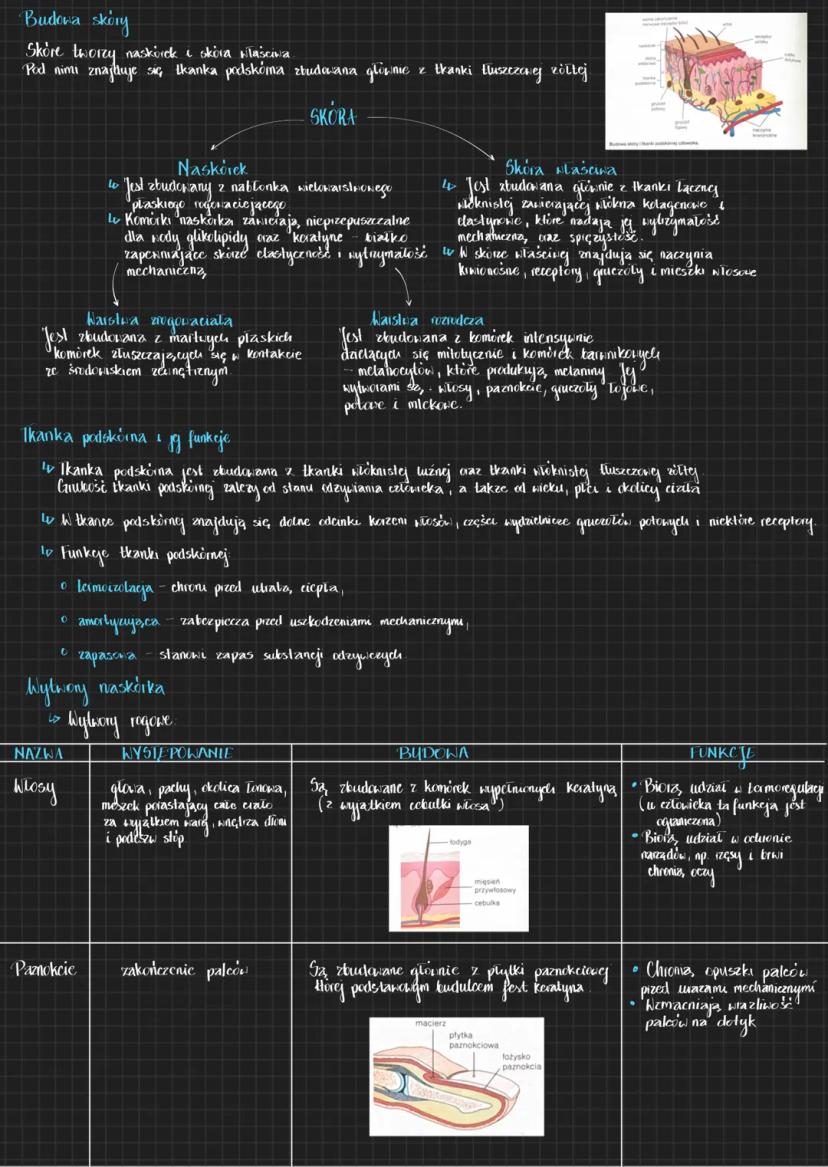 Budowa skóry
Skórę tworzy naskórek i skóra właściwa.
Pod nimi znajduje się tkanka podskórna zbudowana głównie z tkanki tłuszczowej żółtej
nerwowe-receptor bólu
włos
receptor ucisku
naskórek
skóra właściwa
tkanka podskórna
ciałko dotykowe
gruczoł potowy
gruczoł łojowy
naczynia krwionośne
Budowa skóry i tkanki podskórnej człowieka.
SKÓRA
Naskórek
↳ Jest zbudowany z nabłonka wielowarstwowego
płaskiego rogowaciejącego
↳ Komórki naskórka zawierają, nieprzepuszczalne
dla wody glikolipidy oraz keratynę - białko
zapewniające skórze elastyczność i wytrzymałość
mechaniczną,
Skóra właściwa
↳ Jest zbudowana głównie z tkanki łącznej
włóknistej zawierającej włókna kolagenowe i
elastynowe, które nadają jej wytrzymałość
mechaniczną, oraz sprężystość.
↳ W skórze właściwej znajdują się naczynia
krwionośne, receptory, gruczoły i mieszki włosowe
Warstwa zrogowaciała
Jest zbudowana z martwych płaskich
komórek złuszczających się w kontakcie
ze środowiskiem zewnętrznym.
Warstwa rozrodcza
Jest zbudowana z komórek intensywnie
dzielących się mitotycznie i komórek barwnikowych
- melanocytów, które produkują, melaniny Jej
wytworami są: włosy, paznokcie, gruczoły łojowe,
potowe i mlekowe.
Tkanka podskórna i jej funkcje
↳ Tkanka podskórna jest zbudowana z tkanki włóknistej luźnej oraz tkanki włóknistej tłuszczowej żółtej.
Grubość tkanki podskórnej zależy od stanu odżywiania człowieka, a także od wieku, płci i okolicy ciała
↳ W tkance podskórnej znajdują się, dolne odcinki korzeni włosów, części wydzielnicze gruczołów potowych i niektóre receptory.
↳ Funkcje tkanki podskórnej:
○ termoizolacja - chroni przed utratą, ciepła,
○ amortyzująca - zabezpiecza przed uszkodzeniami mechanicznymi,
○ zapasowa - stanowi zapas substancji odżywczych
Wytwory naskórka
↳ Wytwory rogowe:
NAZWA WYSTĘPOWANIE BUDOWA FUNKCJE
Włosy
głowa, pachy, okolica łonowa,
meszek porastający całe ciało
za wyjątkiem warg, wnętrza dłoni
i podeszw stóp
Są zbudowane z komórek wypełnionych keratyną
(z wyjątkiem cebulki włosa)
łodyga
mięsień
przywłosowy
cebulka
• Biorą, udział w termoregulacji
(u człowieka ta funkcja jest
ograniczona)
• Biorą, udział w ochronie
narządów, np. rzęsy i brwi
chronią, oczy
Paznokcie
zakończenie palców
Są, zbudowane głównie z płytki paznokciowej
której podstawowym budulcem jest keratyna.
macierz
płytka
paznokciowa
łożysko
paznokcia
• Chronią, opuszki palców
przed urazami mechanicznymi
• Wzmacniają, wrażliwość
palców na dotyk